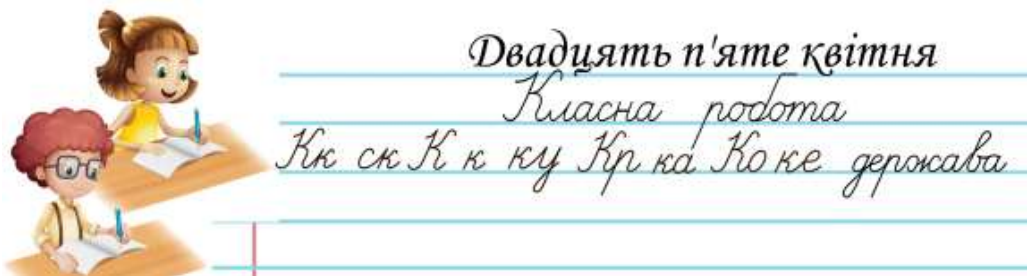 Двадцять п'яте квітня
Класна робота
Кк ск К к ку Кр ка Ко ке держава